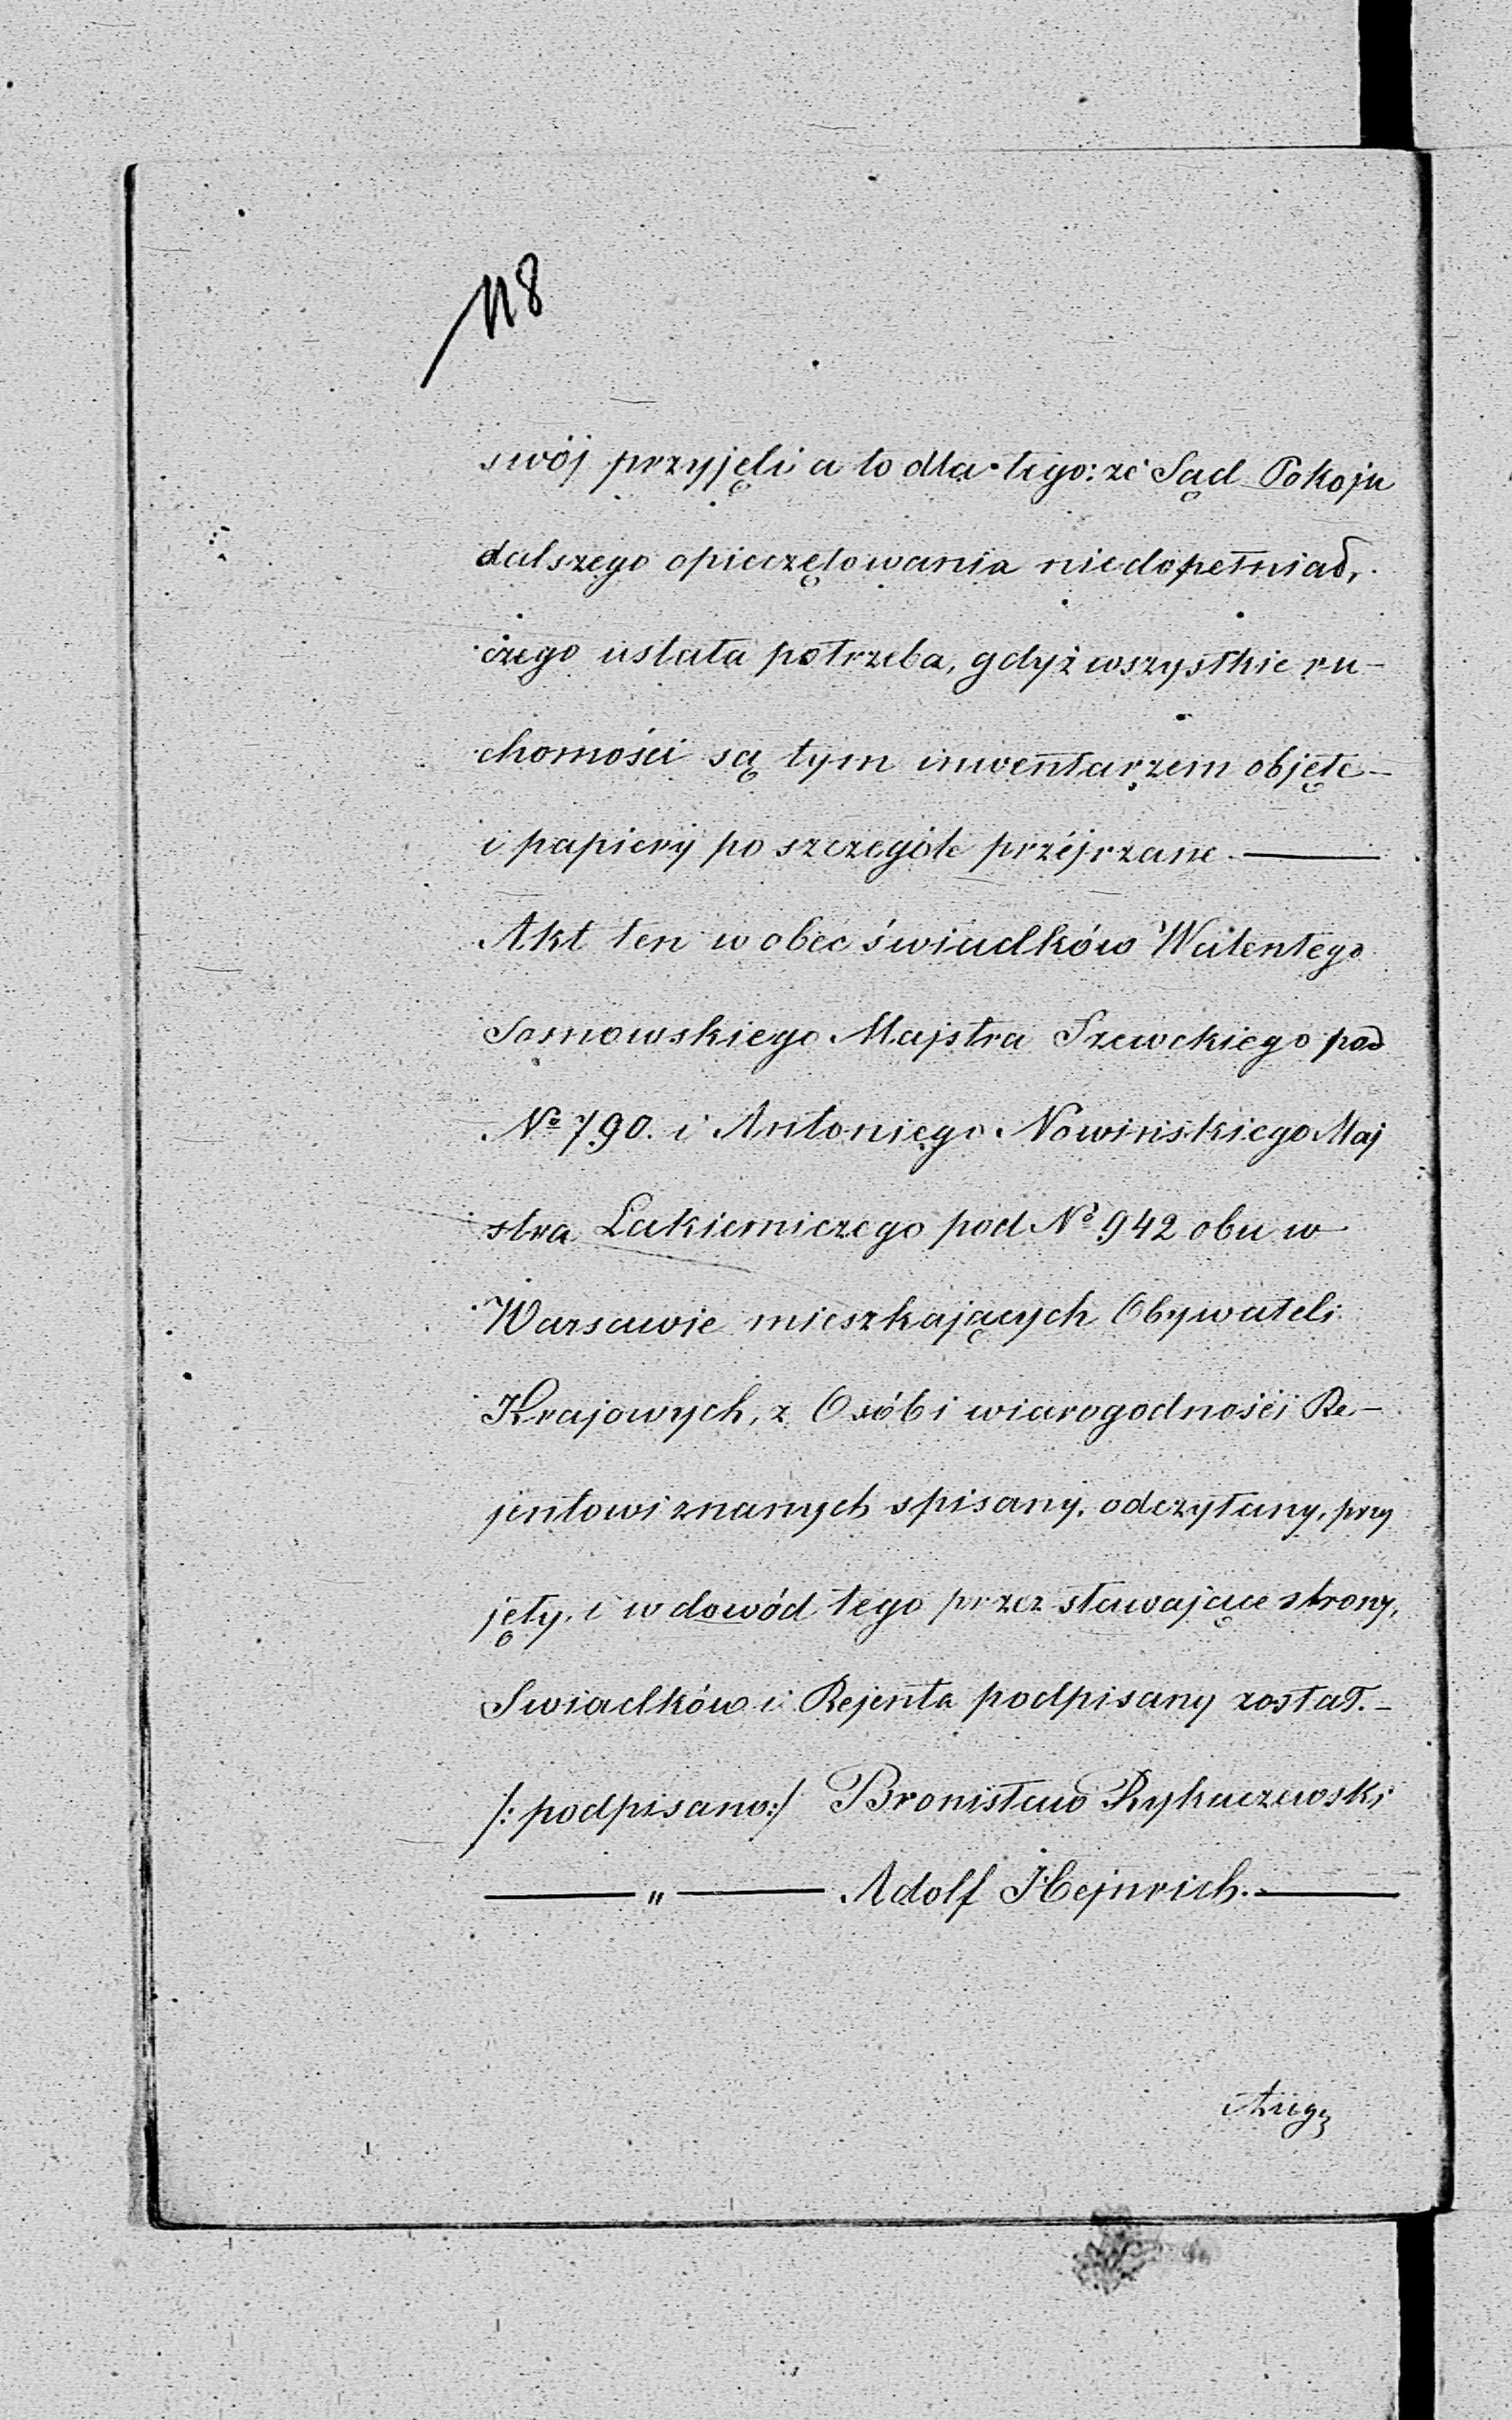 118
swój przyjęli a to dla tego: że Sąd Pokoju
dalszego opieczętowania niedopełniał,
czego ustała potrzeba, gdyż wszystkie ru-
chomości są tym inwentarzem objęte-
i papiery po szczególe przéjrzane.
Akt ten wobec świadków Walentego
Sosnowskiego Majstra Szewckiego pod
No 790. i Antoniego Nowińskiego Maj
stra Lakierniczego pod No 942 obu w
Warsawie mieszkających Obywateli
Krajowych, z Osób i wiarogodności Re-
jentowi znanych spisany, odczytany, przy
jęty, i w dowód tego przez stawające strony,
Swiadków i Rejenta podpisany został.-
/: podpisano:/ Bronisław Rykaczewski
— " — Adolf Hejnrich. —